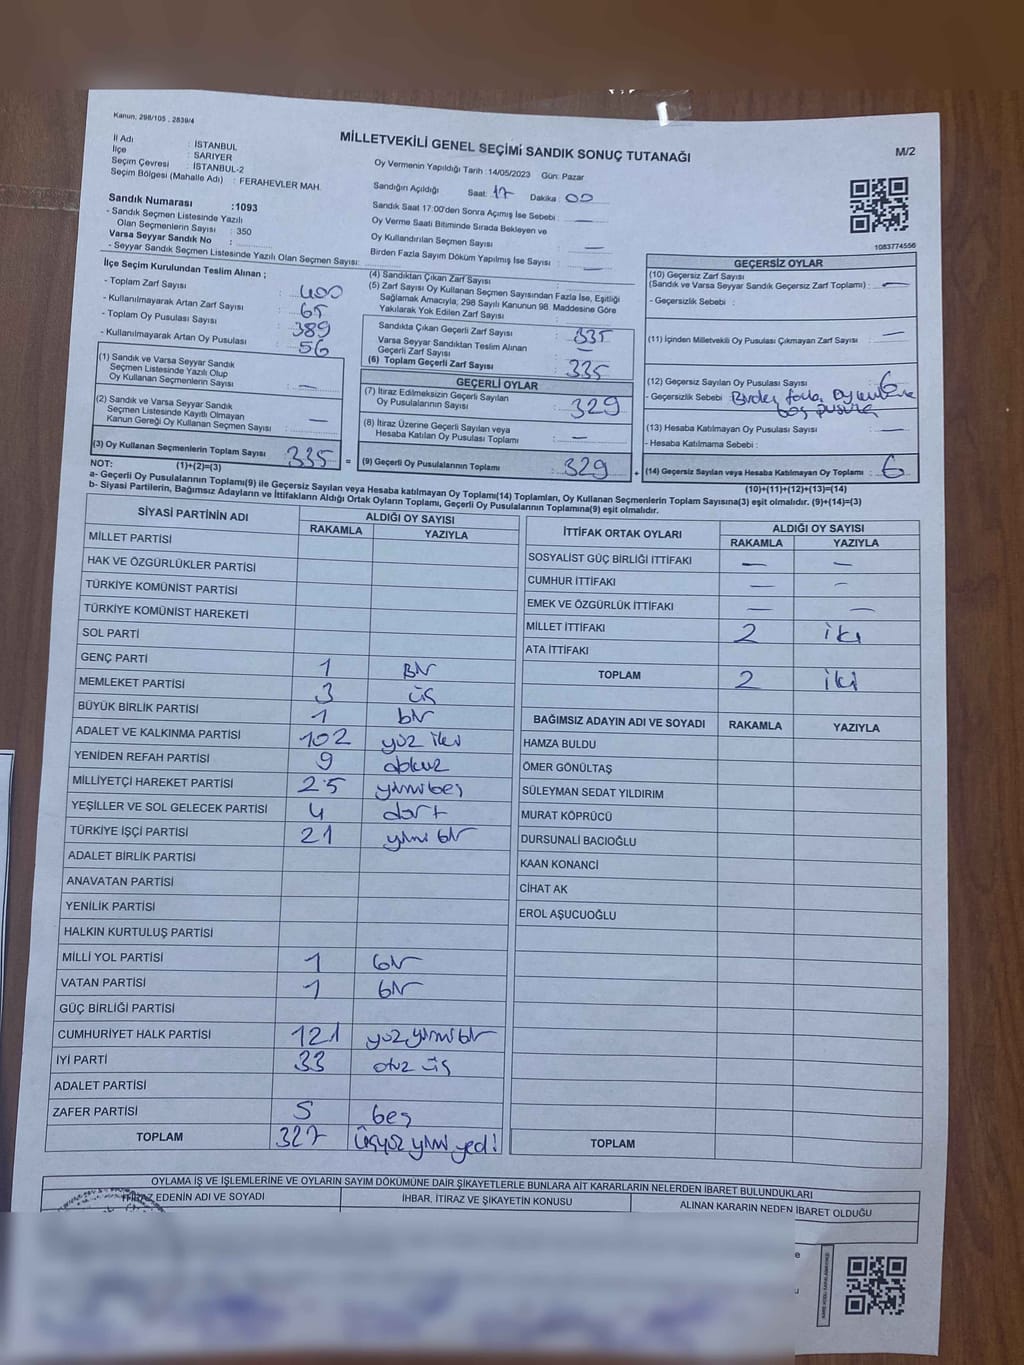 Kanun, 298/105 , 2839/4
MİLLETVEKİLİ GENEL SEÇİMİ SANDIK SONUÇ TUTANAĞI
M/2
İl Adı : İSTANBUL
İlçe : SARIYER
Seçim Çevresi : İSTANBUL-2
Seçim Bölgesi (Mahalle Adı) : FERAHEVLER MAH.
Sandık Numarası :1093
- Sandık Seçmen Listesinde Yazılı
Olan Seçmenlerin Sayısı : 350
Varsa Seyyar Sandık No :
- Seyyar Sandık Seçmen Listesinde Yazılı Olan Seçmen Sayısı:
Oy Vermenin Yapıldığı Tarih :14/05/2023 Gün: Pazar
Sandığın Açıldığı Saat: 17 Dakika : 00
Sandık Saat 17:00'den Sonra Açımış İse Sebebi : —
Oy Verme Saati Bitiminde Sırada Bekleyen ve
Oy Kullandırılan Seçmen Sayısı : —
Birden Fazla Sayım Döküm Yapılmış İse Sayısı : —
1083774556
İlçe Seçim Kurulundan Teslim Alınan ;
- Toplam Zarf Sayısı : 400
- Kullanılmayarak Artan Zarf Sayısı : 65
- Toplam Oy Pusulası Sayısı : 389
- Kullanılmayarak Artan Oy Pusulası : 56
(1) Sandık ve Varsa Seyyar Sandık
Seçmen Listesinde Yazılı Olup
Oy Kullanan Seçmenlerin Sayısı : —
(2) Sandık ve Varsa Seyyar Sandık
Seçmen Listesinde Kayıtlı Olmayan
Kanun Gereği Oy Kullanan Seçmen Sayısı : —
(3) Oy Kullanan Seçmenlerin Toplam Sayısı 335
(1)+(2)=(3)
(4) Sandıktan Çıkan Zarf Sayısı :
(5) Zarf Sayısı Oy Kullanan Seçmen Sayısından Fazla İse, Eşitliği
Sağlamak Amacıyla; 298 Sayılı Kanunun 98. Maddesine Göre
Yakılarak Yok Edilen Zarf Sayısı :
Sandıkta Çıkan Geçerli Zarf Sayısı : 335
Varsa Seyyar Sandıktan Teslim Alınan
Geçerli Zarf Sayısı : —
(6) Toplam Geçerli Zarf Sayısı : 335
GEÇERLİ OYLAR
(7) İtiraz Edilmeksizin Geçerli Sayılan
Oy Pusulalarının Sayısı : 329
(8) İtiraz Üzerine Geçerli Sayılan veya
Hesaba Katılan Oy Pusulası Toplamı : —
= (9) Geçerli Oy Pusulalarının Toplamı : 329 +
GEÇERSİZ OYLAR
(10) Geçersiz Zarf Sayısı
(Sandık ve Varsa Seyyar Sandık Geçersiz Zarf Toplamı) : —
- Geçersizlik Sebebi :
(11) İçinden Milletvekili Oy Pusulası Çıkmayan Zarf Sayısı : —
(12) Geçersiz Sayılan Oy Pusulası Sayısı : 6
- Geçersizlik Sebebi : Birden fazla
boş pusula
(13) Hesaba Katılmayan Oy Pusulası Sayısı : —
- Hesaba Katılmama Sebebi :
(14) Geçersiz Sayılan veya Hesaba Katılmayan Oy Toplamı : 6
(10)+(11)+(12)+(13)=(14)
NOT:
a- Geçerli Oy Pusulalarının Toplamı(9) ile Geçersiz Sayılan veya Hesaba katılmayan Oy Toplam(14) Toplamları, Oy Kullanan Seçmenlerin Toplam Sayısına(3) eşit olmalıdır. (9)+(14)=(3)
b- Siyasi Partilerin, Bağımsız Adayların ve İttifakların Aldığı Ortak Oyların Toplamı, Geçerli Oy Pusulalarının Toplamına(9) eşit olmalıdır.
SİYASİ PARTİNİN ADI ALDIĞI OY SAYISI
RAKAMLA YAZIYLA
MİLLET PARTİSİ
HAK VE ÖZGÜRLÜKLER PARTİSİ
TÜRKİYE KOMÜNİST PARTİSİ
TÜRKİYE KOMÜNİST HAREKETİ
SOL PARTİ
GENÇ PARTİ 1 Bir
MEMLEKET PARTİSİ 3 üç
BÜYÜK BİRLİK PARTİSİ 1 bir
ADALET VE KALKINMA PARTİSİ 102 yüz iki
YENİDEN REFAH PARTİSİ 9 dokuz
MİLLİYETÇİ HAREKET PARTİSİ 25 yirmi beş
YEŞİLLER VE SOL GELECEK PARTİSİ 4 dört
TÜRKİYE İŞÇİ PARTİSİ 21 yirmi bir
ADALET BİRLİK PARTİSİ
ANAVATAN PARTİSİ
YENİLİK PARTİSİ
HALKIN KURTULUŞ PARTİSİ
MİLLİ YOL PARTİSİ 1 bir
VATAN PARTİSİ 1 bir
GÜÇ BİRLİĞİ PARTİSİ
CUMHURİYET HALK PARTİSİ 121 yüz yirmi bir
İYİ PARTİ 33 otuz üç
ADALET PARTİSİ
ZAFER PARTİSİ 5 beş
TOPLAM 327 üçyüz yirmi yedi
İTTİFAK ORTAK OYLARI ALDIĞI OY SAYISI
RAKAMLA YAZIYLA
SOSYALİST GÜÇ BİRLİĞİ İTTİFAKI — —
CUMHUR İTTİFAKI — —
EMEK VE ÖZGÜRLÜK İTTİFAKI — —
MİLLET İTTİFAKI 2 iki
ATA İTTİFAKI
TOPLAM 2 iki
BAĞIMSIZ ADAYIN ADI VE SOYADI RAKAMLA YAZIYLA
HAMZA BULDU
ÖMER GÖNÜLTAŞ
SÜLEYMAN SEDAT YILDIRIM
MURAT KÖPRÜCÜ
DURSUNALİ BACIOĞLU
KAAN KONANCİ
CİHAT AK
EROL AŞUCUOĞLU
TOPLAM
OYLAMA İŞ VE İŞLEMLERİNE VE OYLARIN SAYIM DÖKÜMÜNE DAİR ŞİKAYETLERLE BUNLARA AİT KARARLARIN NELERDEN İBARET BULUNDUKLARI
İTİRAZ EDENİN ADI VE SOYADI İHBAR, İTİRAZ VE ŞİKAYETİN KONUSU ALINAN KARARIN NEDEN İBARET OLDUĞU